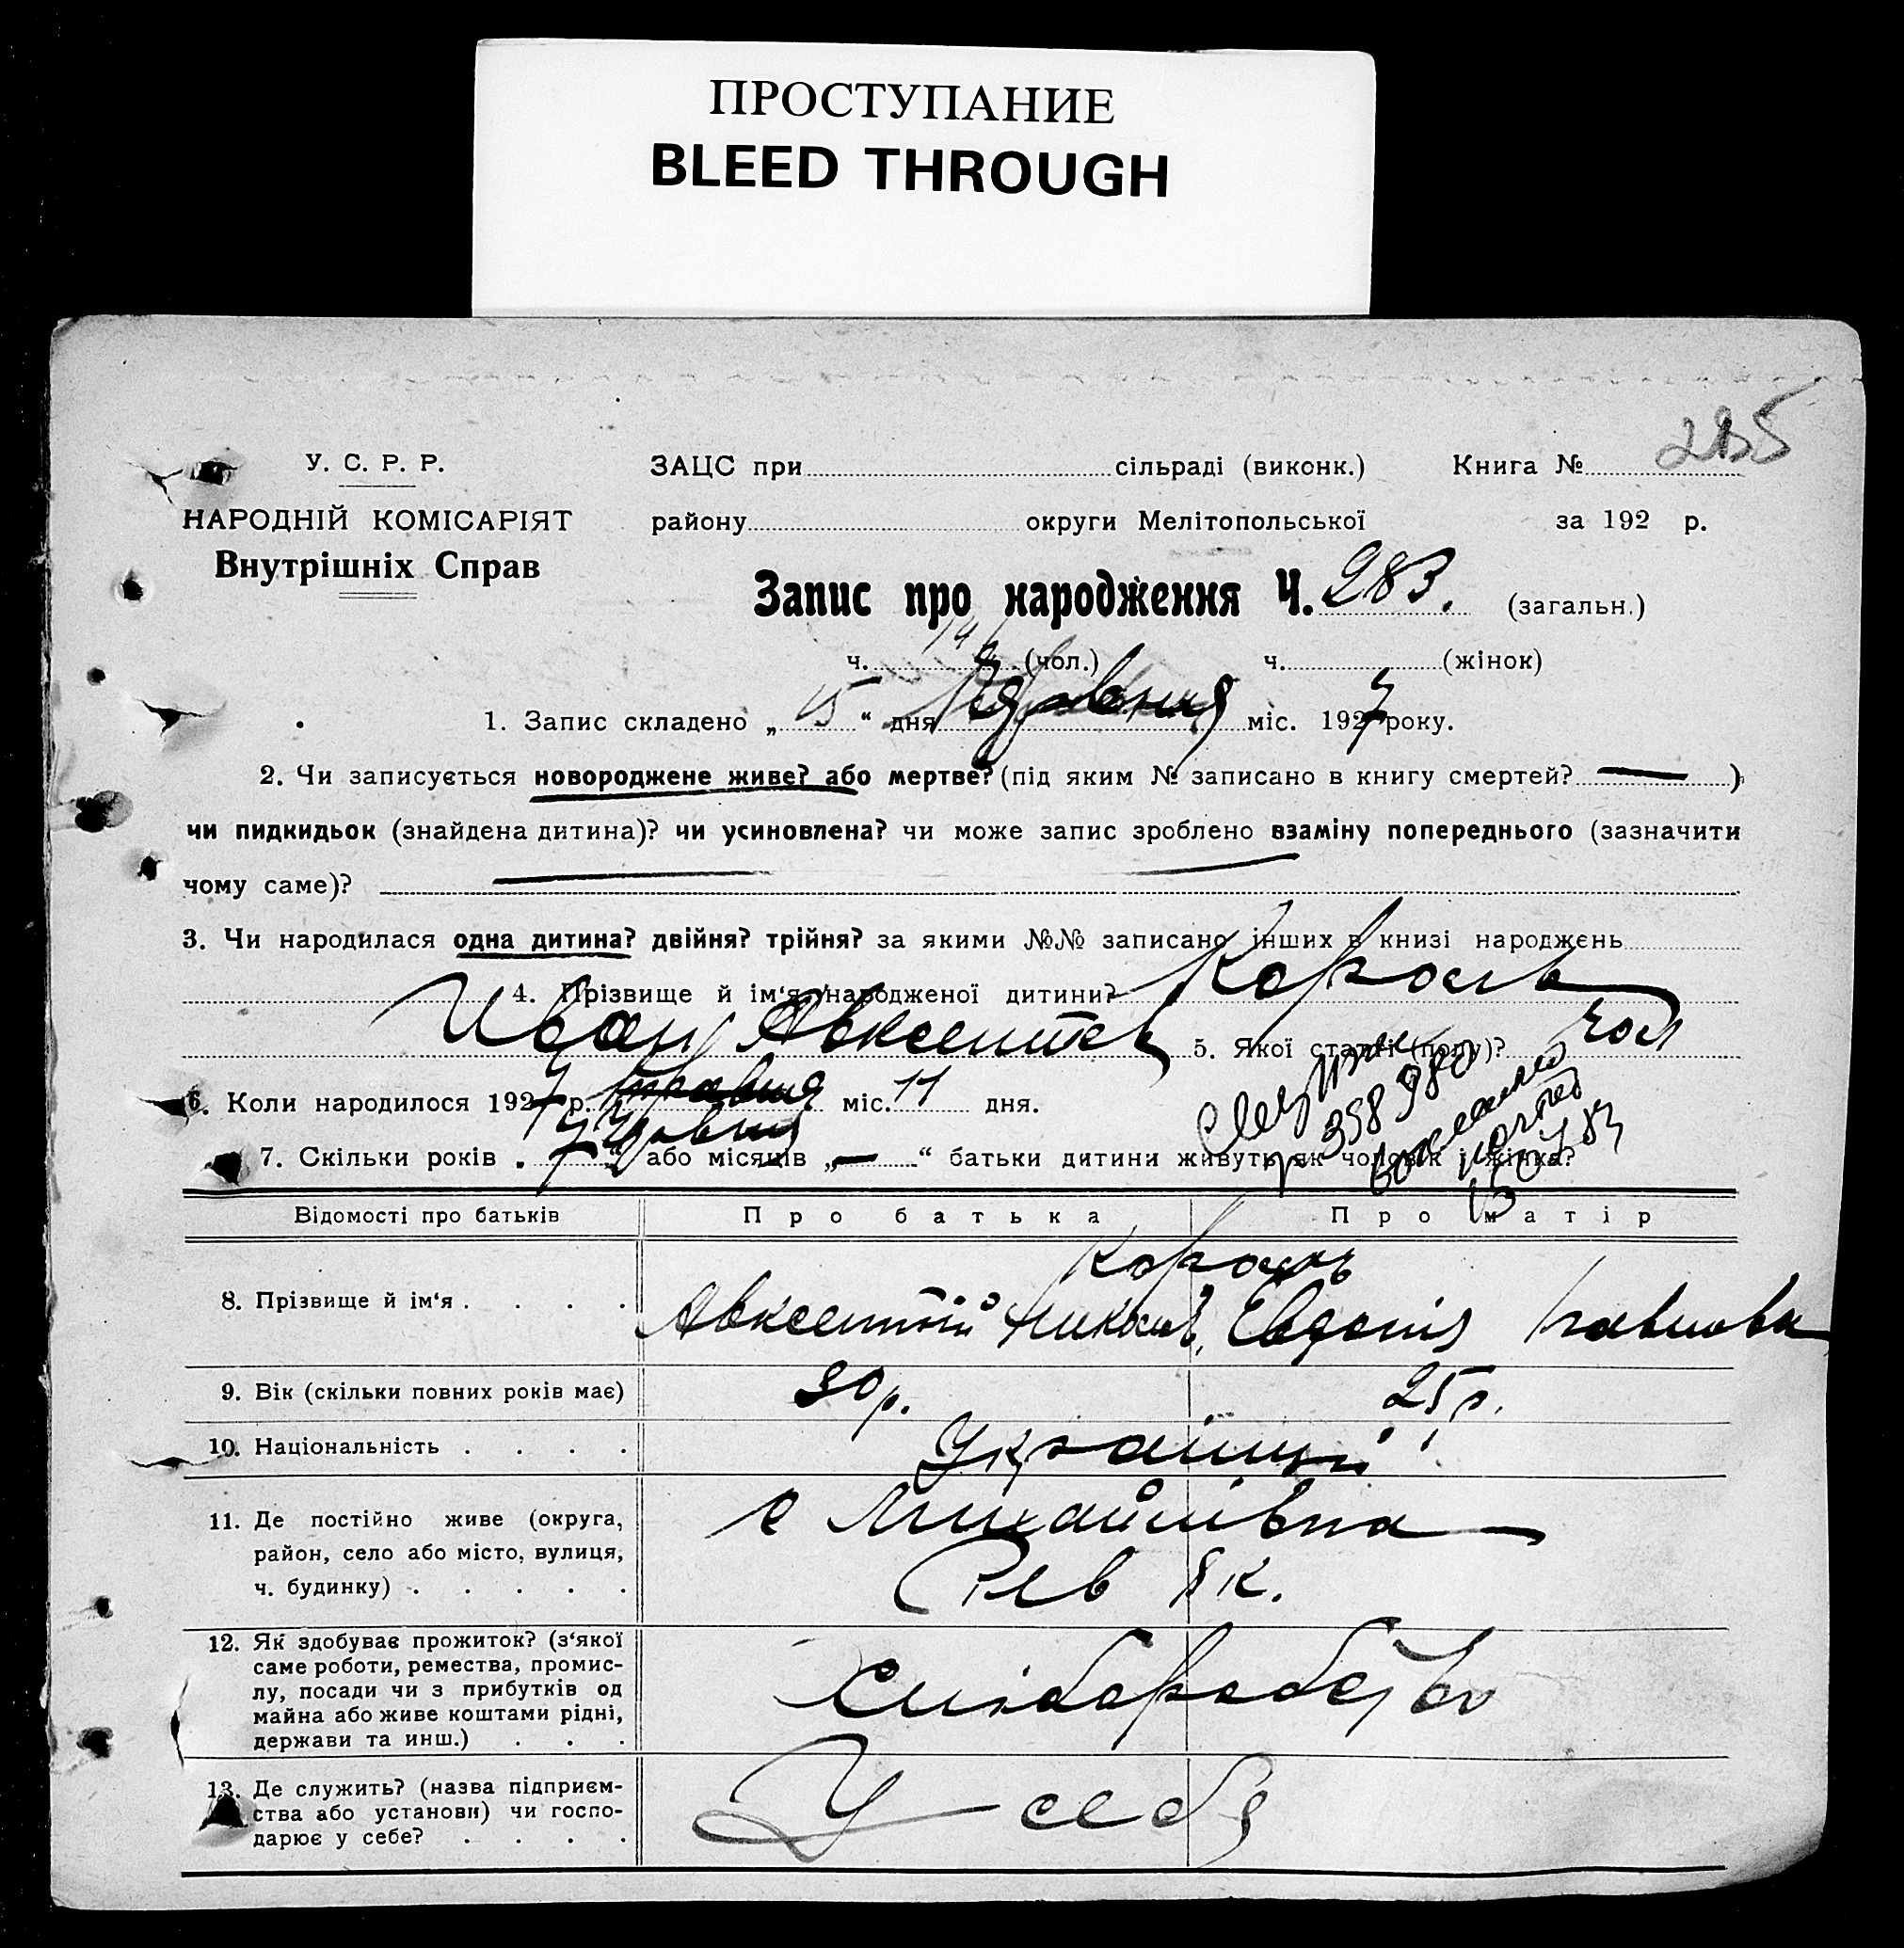 ПРОСТУПАНИЕ
BLEED THROUGH
У. С. Р. Р.
НАРОДНІЙ КОМІСАРІЯТ
Внутрішніх Справ
ЗАЦС при сільраді (виконк.) Книга №
району округи Мелітопольської за 192 р.
Запис про народження Ч. 283. (загальн.)
ч. (чол.) ч. (жінок)
1. Запис складено „ 15 “ дня міс. 1927 року.
2. Чи записується новороджене живе? або мертве? (під яким № записано в книгу смертей? — )
чи пидкидьок (знайдена дитина)? чи усиновлена? чи може запис зроблено взаміну попереднього (зазначити
чому саме)?
3. Чи народилася одна дитина? двійня? трійня? за якими №№ записано інших в книзі народжень
4. Прізвище й ім‘я народженої дитини? Король
Иван Авксентьев 5. Якої статті (полу)? чол
6. Коли народилося 1927 р. травня міс. 11 дня.
червня
7. Скільки років „ 7 “ або місяців „ — “ батьки дитини живуть як чоловік і жінка?
358980
Відомості про батьків
Про батька
Про матір
8. Прізвище й ім‘я . . . .
Король
Авксентій Никол. Евдокія Павловна
9. Вік (скільки повних років має)
30 р. 25 р.
10. Національність . . . .
Українці
11. Де постійно живе (округа,
район, село або місто, вулиця,
ч. будинку) . . . . .
с Михайлівка
Рев к.
12. Як здобуває прожиток? (з‘якої
саме роботи, ремества, промис-
лу, посади чи з прибутків од
майна або живе коштами рідні,
держави та инш.) . . .
Хліборобство
13. Де служить? (назва підприєм-
ства або установи) чи госпо-
дарює у себе? . . . .
У себя